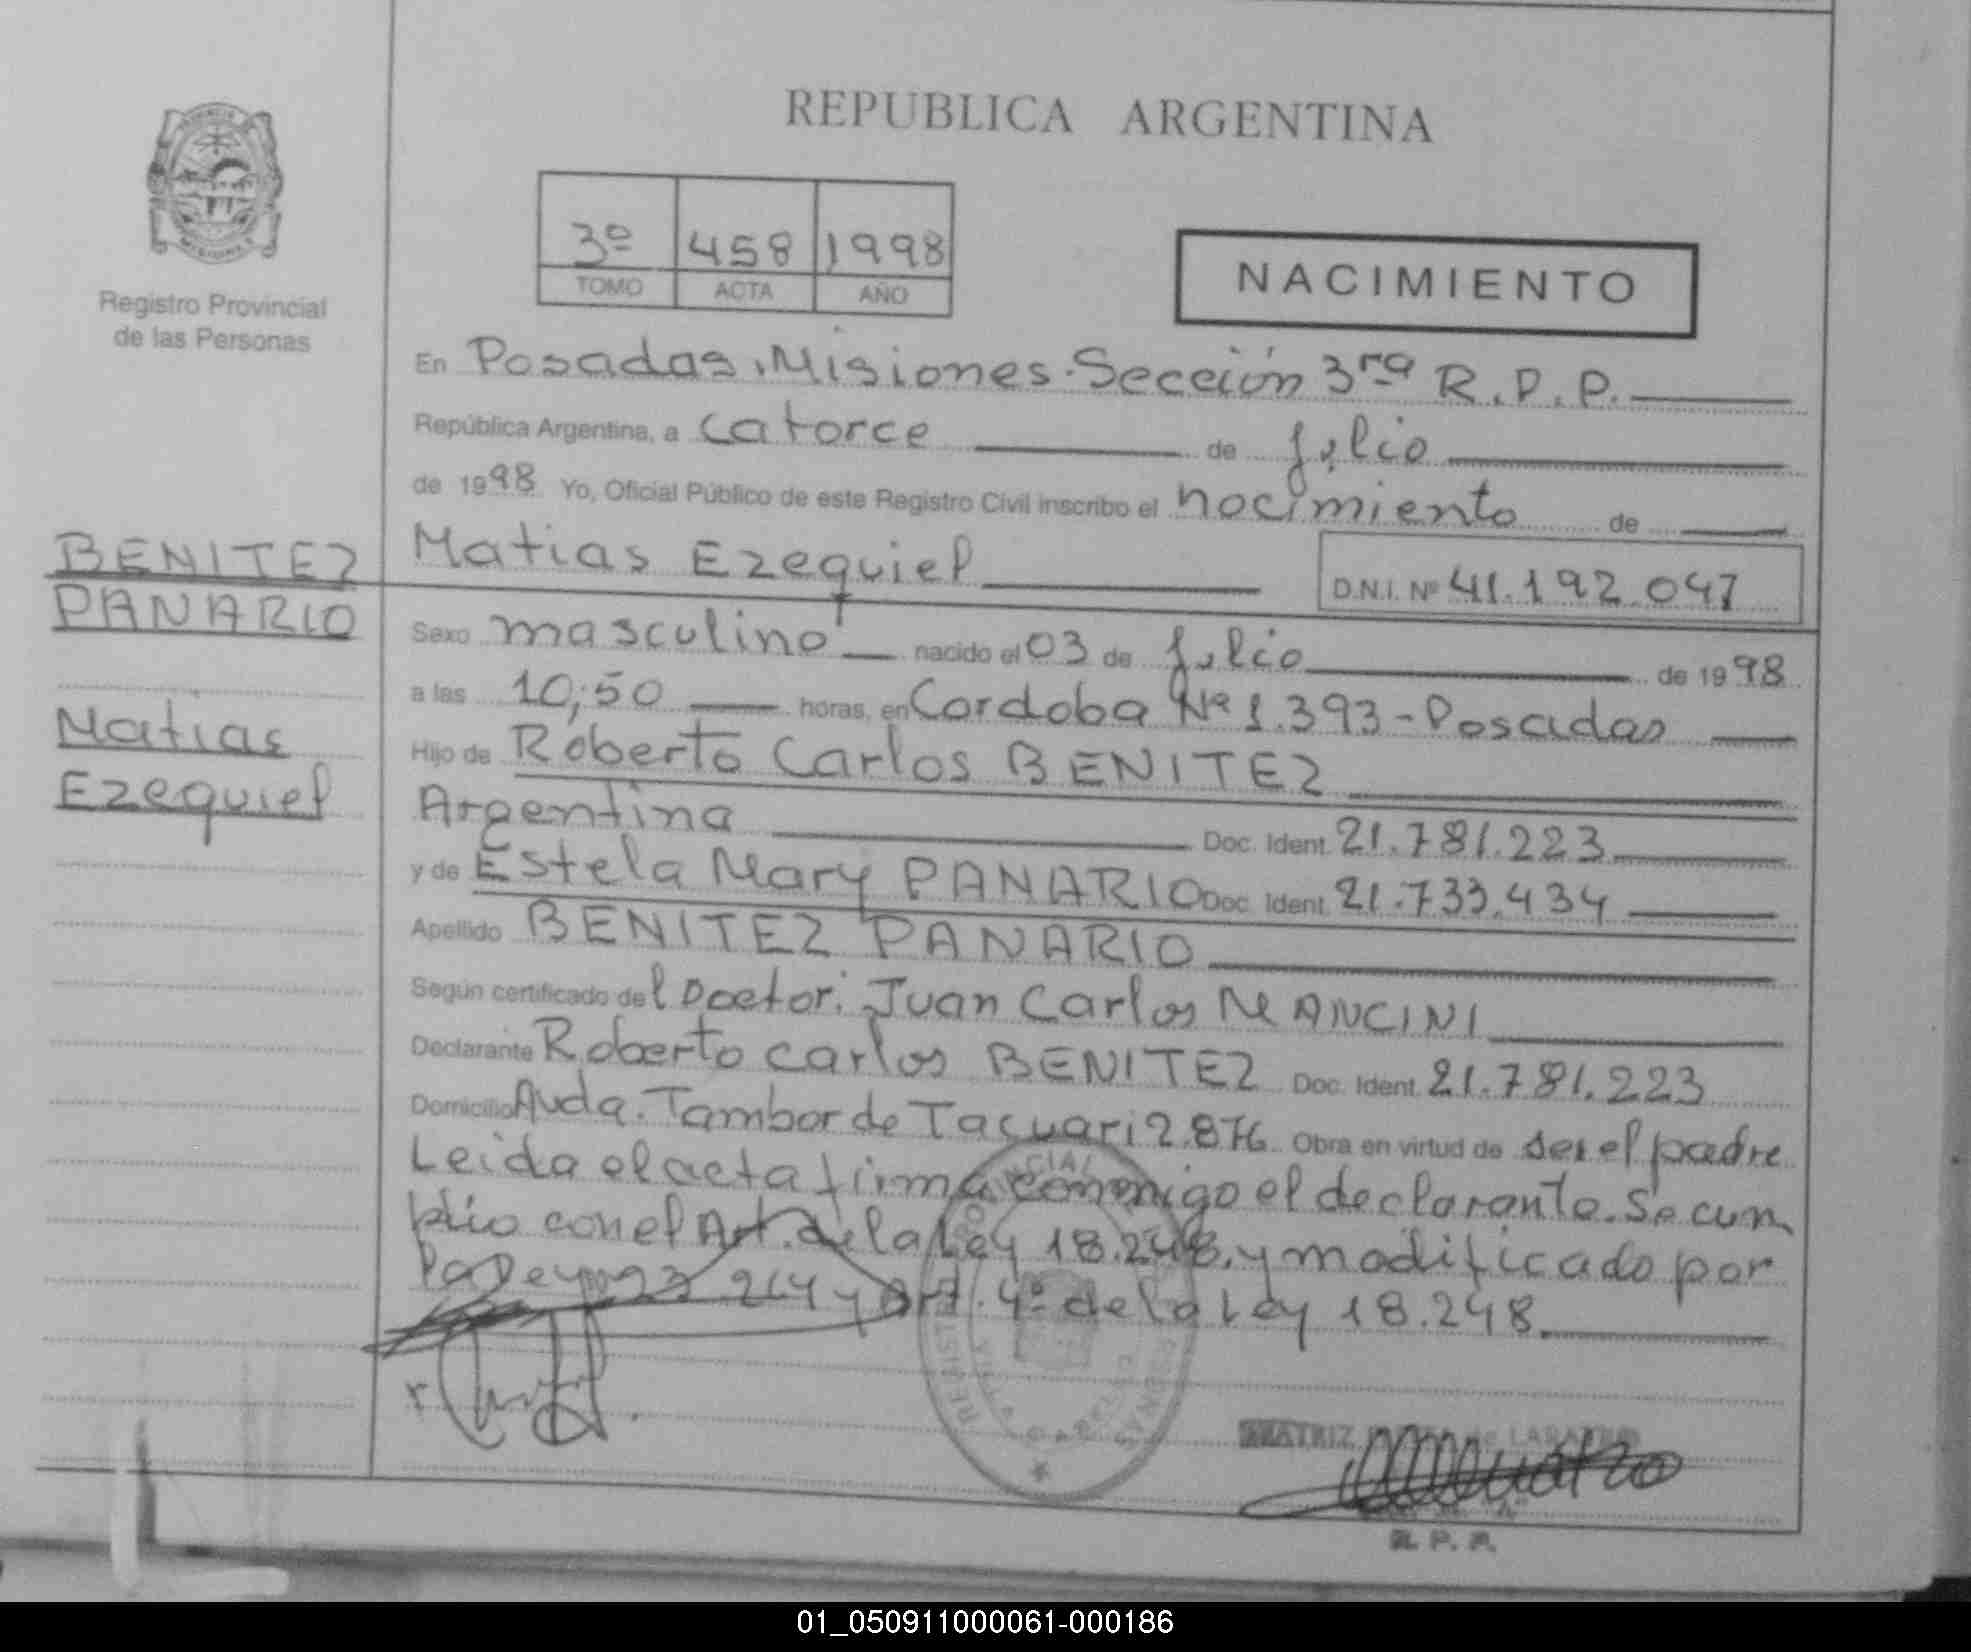 REPUBLICA ARGENTINA
3º 458 1998
TOMO ACTA AÑO
NACIMIENTO
Registro Provincial
de las Personas
BENITEZ
PANARIO
Matias
Ezequiel
En Posadas, Misiones. Sección 3ra R.P.P.
República Argentina, a catorce de julio
de 1998 Yo, Oficial Público de este Registro Civil inscribo el nacimiento de
Matias Ezequiel D.N.I. Nº 41.192.047
Sexo masculino nacido el 03 de julio de 1998
a las 10,50 horas, en Cordoba Nº 1.393 - Posadas
Hijo de Roberto Carlos BENITEZ
Argentina Doc. Ident. 21.781.223
y de Estela Mary PANARIO Doc. Ident. 21.733.434
Apellido BENITEZ PANARIO
Según certificado del Doctor: Juan Carlos MANCINI
Declarante Roberto Carlos BENITEZ Doc. Ident. 21.781.223
Domicilio Avda. Tambor de Tacuari 2.876 Obra en virtud de ser el padre
Leida el acta firma conmigo el declarante. Se cum
plio con el Art. de la Ley 18.248, y modificado por
la Ley 23 264 y Art. 4º de la Ley 18.248.
REGISTRO PROVINCIAL
BEATRIZ de
R. P. P.
01_050911000061-000186